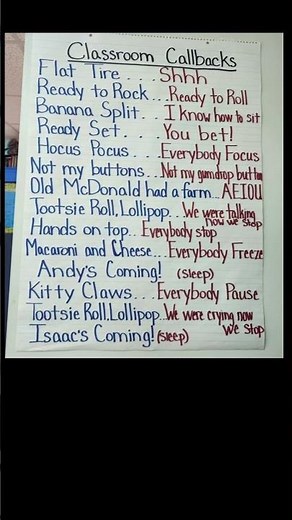 Classroom Callbacks
Flat Tire....Shhh
Ready to Rock...Ready to Roll
Banana Split...I know how to sit
Ready Set....You bet!
Hocus Pocus...Everybody Focus
Not my buttons..Not my gumdrop button
Old McDonald had a farm...AEIOU
Tootsie Roll, Lollipop...We were talking
now we stop
Hands on top...Everybody stop
Macaroni and Cheese...Everybody Freeze
Andy's Coming! (sleep)
Kitty Claws...Everybody Pause
Tootsie Roll, Lollipop...We were crying now
we stop
Isaac's Coming! (sleep)